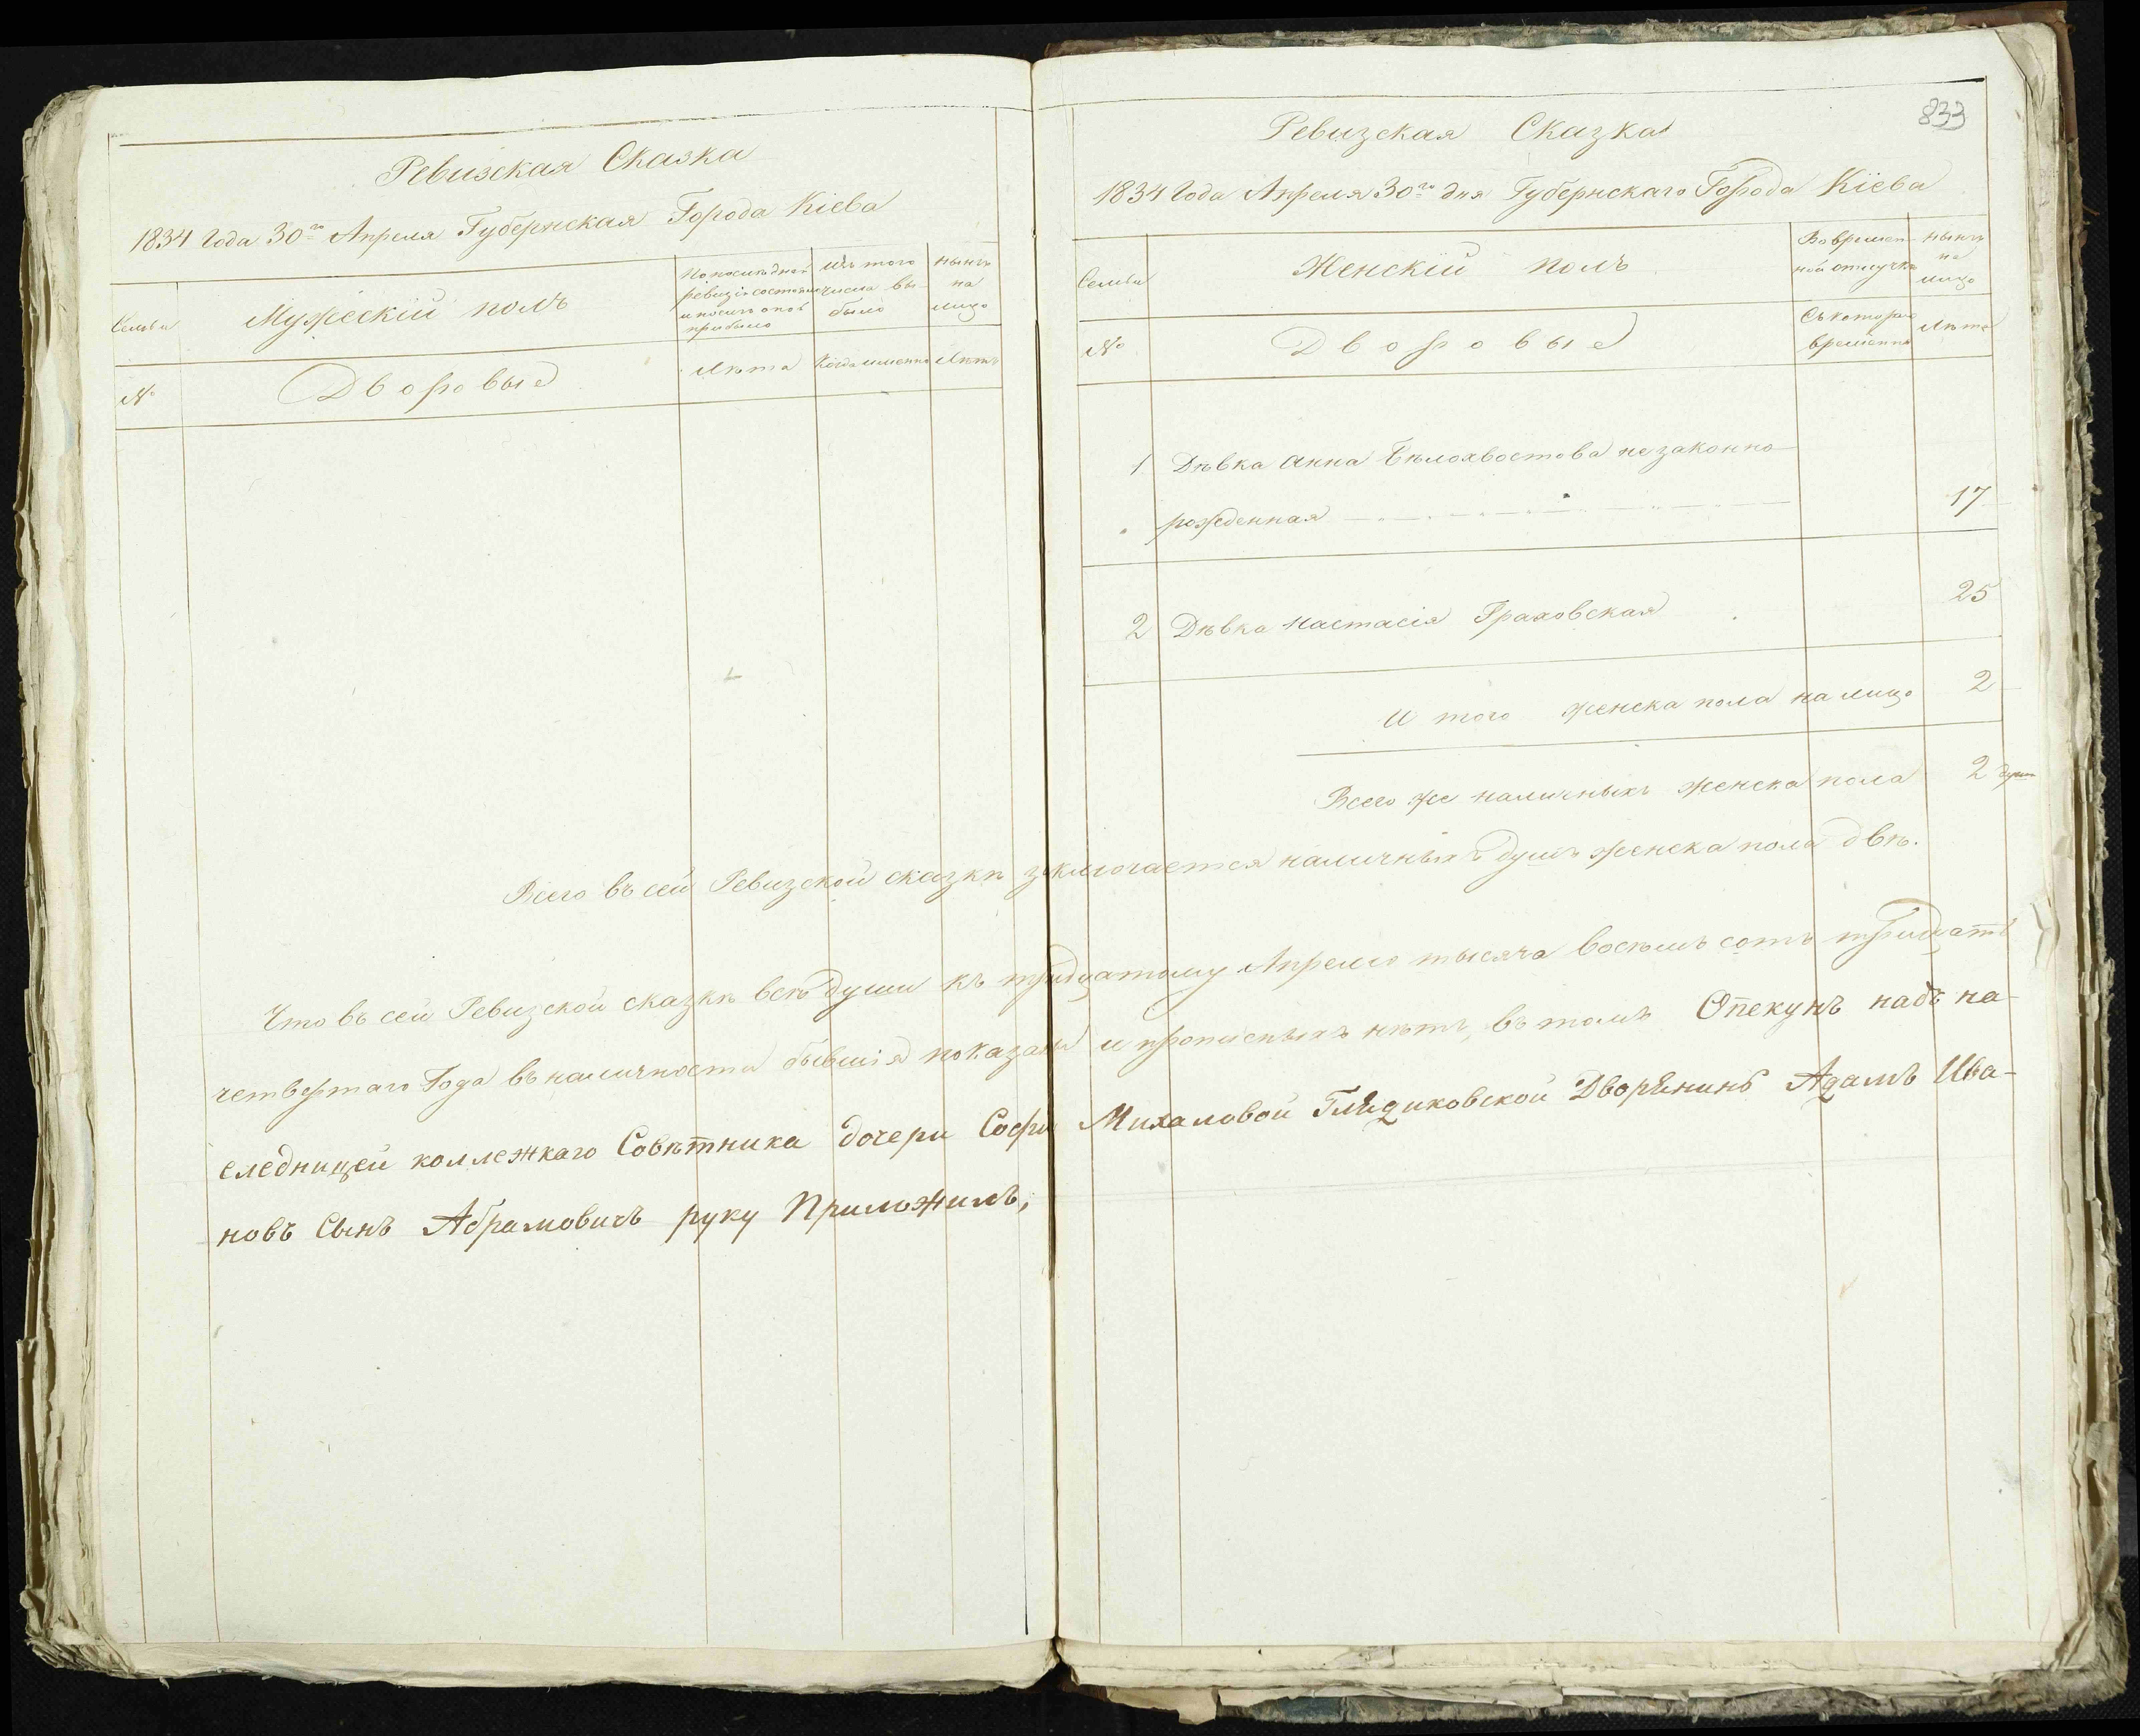 Ревизская Сказка
1834 Года 30го Апреля Губернская Города Кіева
Семьи
Мужескій полъ
По последней
ревизіи состояло
и после оной
прибыло
Изъ того
числа вы-
было
Нынѣ
на
лицо
№
Дворовые
Лѣта
Когда именно
Лѣтъ
833
Ревизская Сказка
1834 Года Апреля 30го дня Губернскаго Города Кіева
Семьи
Женскій полъ
Во времен-
ной отлучке
Нынѣ
на
лицо
№
Дворовые
Съ котораго
времени
Лѣта
1 Дѣвка Анна Бѣлохвостова незаконно
рожденная 17
2 Дѣвка Настасія Граховская 25
И того женска пола на лицо 2
Всего же наличныхъ женска пола 2 души
Всего въ сей Ревизской сказкѣ заключается наличныхъ душъ женска пола двѣ.
Что въ сей Ревизской сказкѣ всѣ души къ тридцатому Апрелю тысяча восемь сотъ тридцать
четвертаго Года въ наличности бывшія показаны и прописныхъ нѣтъ, въ томъ Опекунъ надъ на-
следницей коллежкаго Совѣтника дочери Софи Михаловой Дворянинъ Адамъ Ива-
новъ Сынъ Абрамовичъ руку Приложилъ,